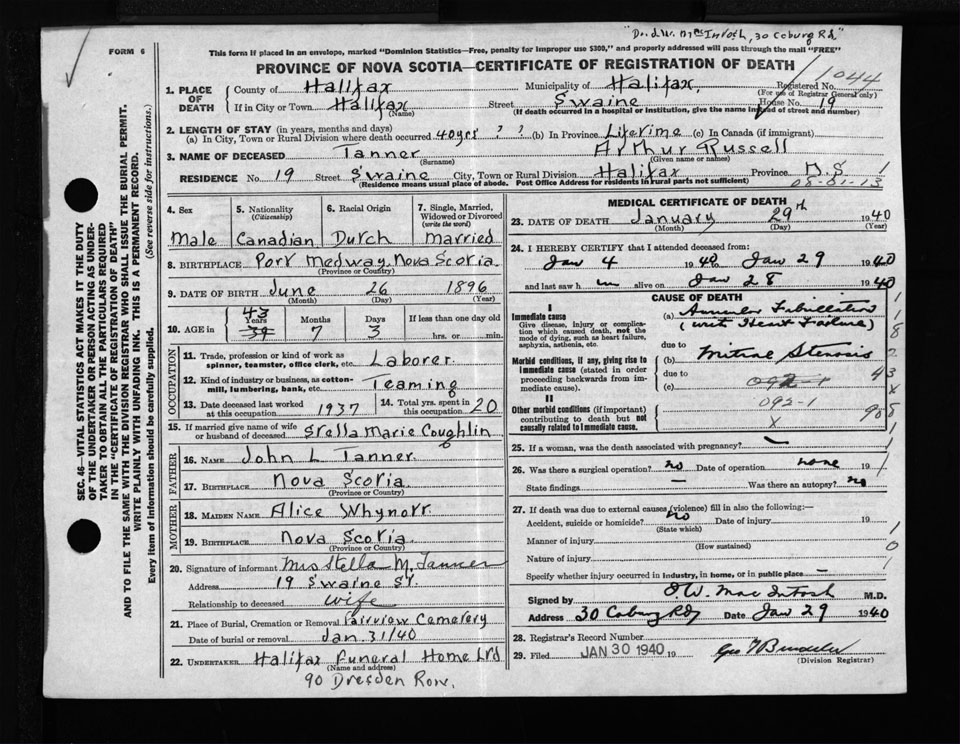 Dr. J.W. MacIntosh, 30 Coburg Rd.
FORM 6
This form if placed in an envelope, marked "Dominion Statistics—Free, penalty for improper use $300," and properly addressed will pass through the mail "FREE"
PROVINCE OF NOVA SCOTIA—CERTIFICATE OF REGISTRATION OF DEATH
SEC. 46—VITAL STATISTICS ACT MAKES IT THE DUTY
OF THE UNDERTAKER OR PERSON ACTING AS UNDER-
TAKER TO OBTAIN ALL THE PARTICULARS REQUIRED
IN THE "CERTIFICATE OF REGISTRATION OF DEATH"
AND TO FILE THE SAME WITH THE DIVISION REGISTRAR WHO SHALL ISSUE THE BURIAL PERMIT.
WRITE PLAINLY WITH UNFADING INK. THIS IS A PERMANENT RECORD.
Every item of Information should be carefully supplied. (See reverse side for instructions.)
1. PLACE OF DEATH County of Halifax Municipality of Halifax, Registered No. 1044
(For use of Registrar General only)
If in City or Town Halifax Street Swaine House No. 19
(Name) (If death occurred in a hospital or institution, give the name instead of street and number)
2. LENGTH OF STAY (in years, months and days)
(a) In City, Town or Rural Division where death occurred 40 yrs ? ? (b) In Province Lifetime (c) In Canada (if immigrant)
3. NAME OF DECEASED Tanner Arthur Russell
(Surname) (Given name or names)
RESIDENCE No. 19 Street Swaine City, Town or Rural Division Halifax Province N.S 1
(Residence means usual place of abode. Post Office Address for residents in rural parts not sufficient) 05-01-13
4. Sex 5. Nationality (Citizenship) 6. Racial Origin 7. Single, Married, Widowed or Divorced (write the word)
Male Canadian Dutch Married
8. BIRTHPLACE Port Medway, Nova Scotia.
(Province or Country)
9. DATE OF BIRTH June 26 1896
(Month) (Day) (Year)
10. AGE in 43 Years 39 Months 7 Days 3 If less than one day old
hrs. or min.
OCCUPATION
11. Trade, profession or kind of work as spinner, teamster, office clerk, etc. Laborer.
12. Kind of industry or business, as cotton-mill, lumbering, bank, etc. Teaming
13. Date deceased last worked at this occupation 1937 14. Total yrs. spent in this occupation 20
15. If married give name of wife or husband of deceased Stella Marie Coughlin
FATHER
16. NAME John L Tanner
17. BIRTHPLACE Nova Scotia
(Province or Country)
MOTHER
18. MAIDEN NAME Alice Whynott
19. BIRTHPLACE Nova Scotia
(Province or Country)
20. Signature of informant Mrs Stella M. Tanner
Address 19 Swaine St.
Relationship to deceased wife
21. Place of Burial, Cremation or Removal Fairview Cemetery
Date of burial or removal Jan. 31/40
22. UNDERTAKER Halifax Funeral Home Ltd
(Name and address)
90 Dresden Row.
MEDICAL CERTIFICATE OF DEATH
23. DATE OF DEATH January 29th 1940
(Month) (Day)
24. I HEREBY CERTIFY that I attended deceased from:
Jan 4 1940 to Jan 29 1940
and last saw h im alive on Jan 28 1940
CAUSE OF DEATH
I
Immediate cause
Give disease, injury or complication which caused death, not the mode of dying, such as heart failure, asphyxia, asthenia, etc.
(a) Auricular Fibrillation
(with Heart Failure)
due to
Morbid conditions, if any, giving rise to immediate cause (stated in order proceeding backwards from immediate cause).
(b) Mitral Stenosis
due to
(c) 092-1
II
Other morbid conditions (if important) contributing to death but not causally related to immediate cause.
092-1
X
25. If a woman, was the death associated with pregnancy? —
26. Was there a surgical operation? no Date of operation none 19
State findings — Was there an autopsy? no
27. If death was due to external causes (violence) fill in also the following:—
Accident, suicide or homicide? no Date of injury 19
(State which)
Manner of injury
(How sustained)
Nature of injury
Specify whether injury occurred in industry, in home, or in public place —
Signed by J W. MacIntosh M.D.
Address 30 Coburg Rd Date Jan 29 1940
28. Registrar's Record Number
29. Filed JAN 30 1940 19
(Division Registrar)